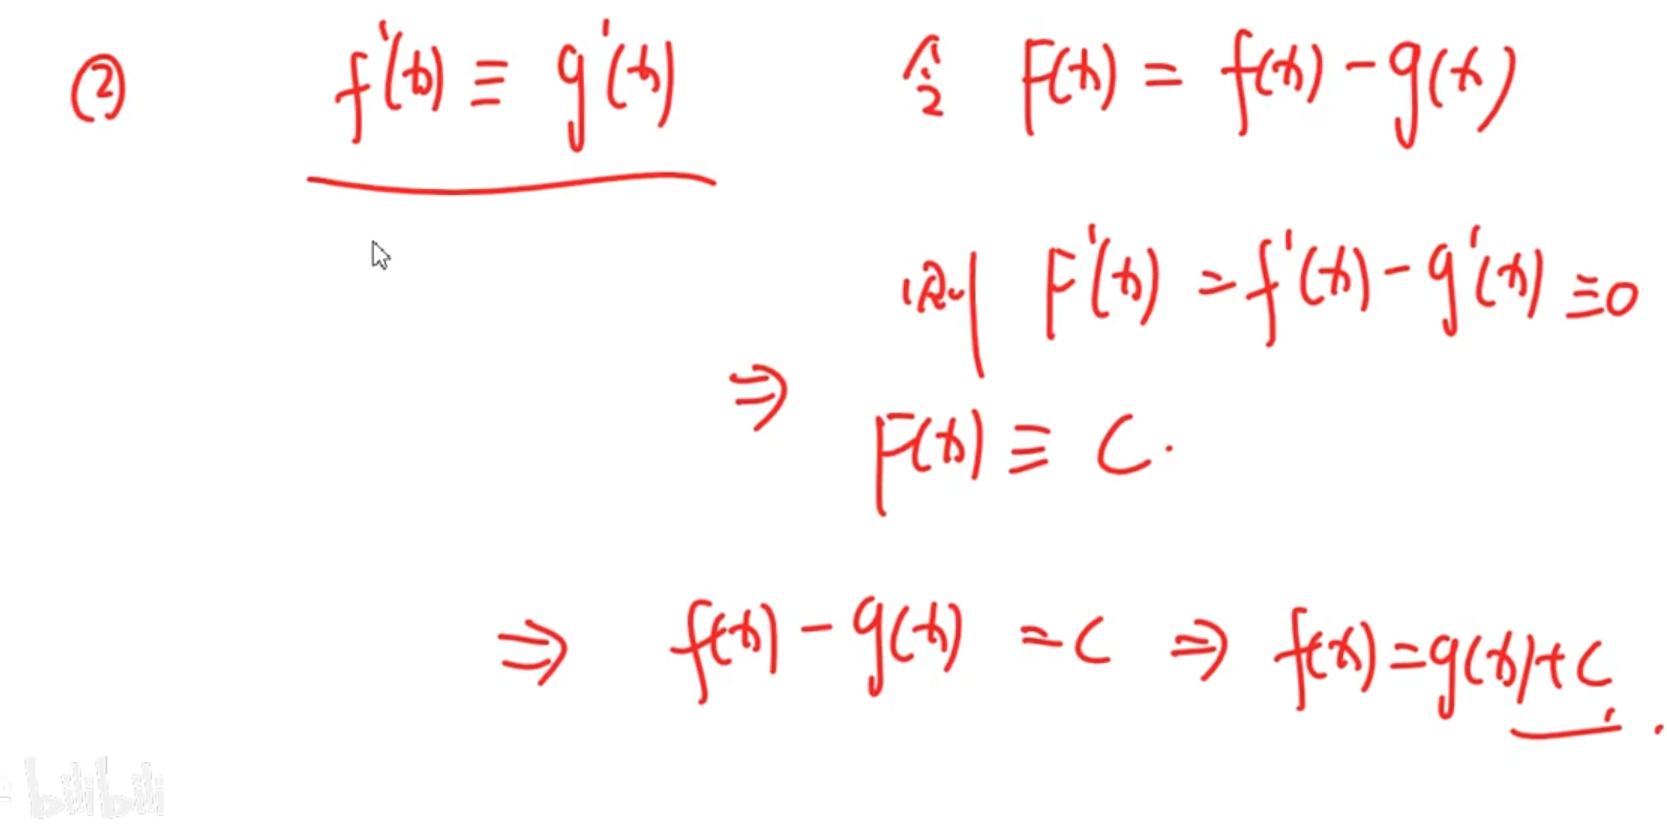 ② f'(x) ≡ g'(x) 令 F(x) = f(x) - g(x)
则 F'(x) = f'(x) - g'(x) ≡ 0
⇒ F(x) ≡ C.
⇒ f(x) - g(x) = C ⇒ f(x) = g(x) + C.
bilibili